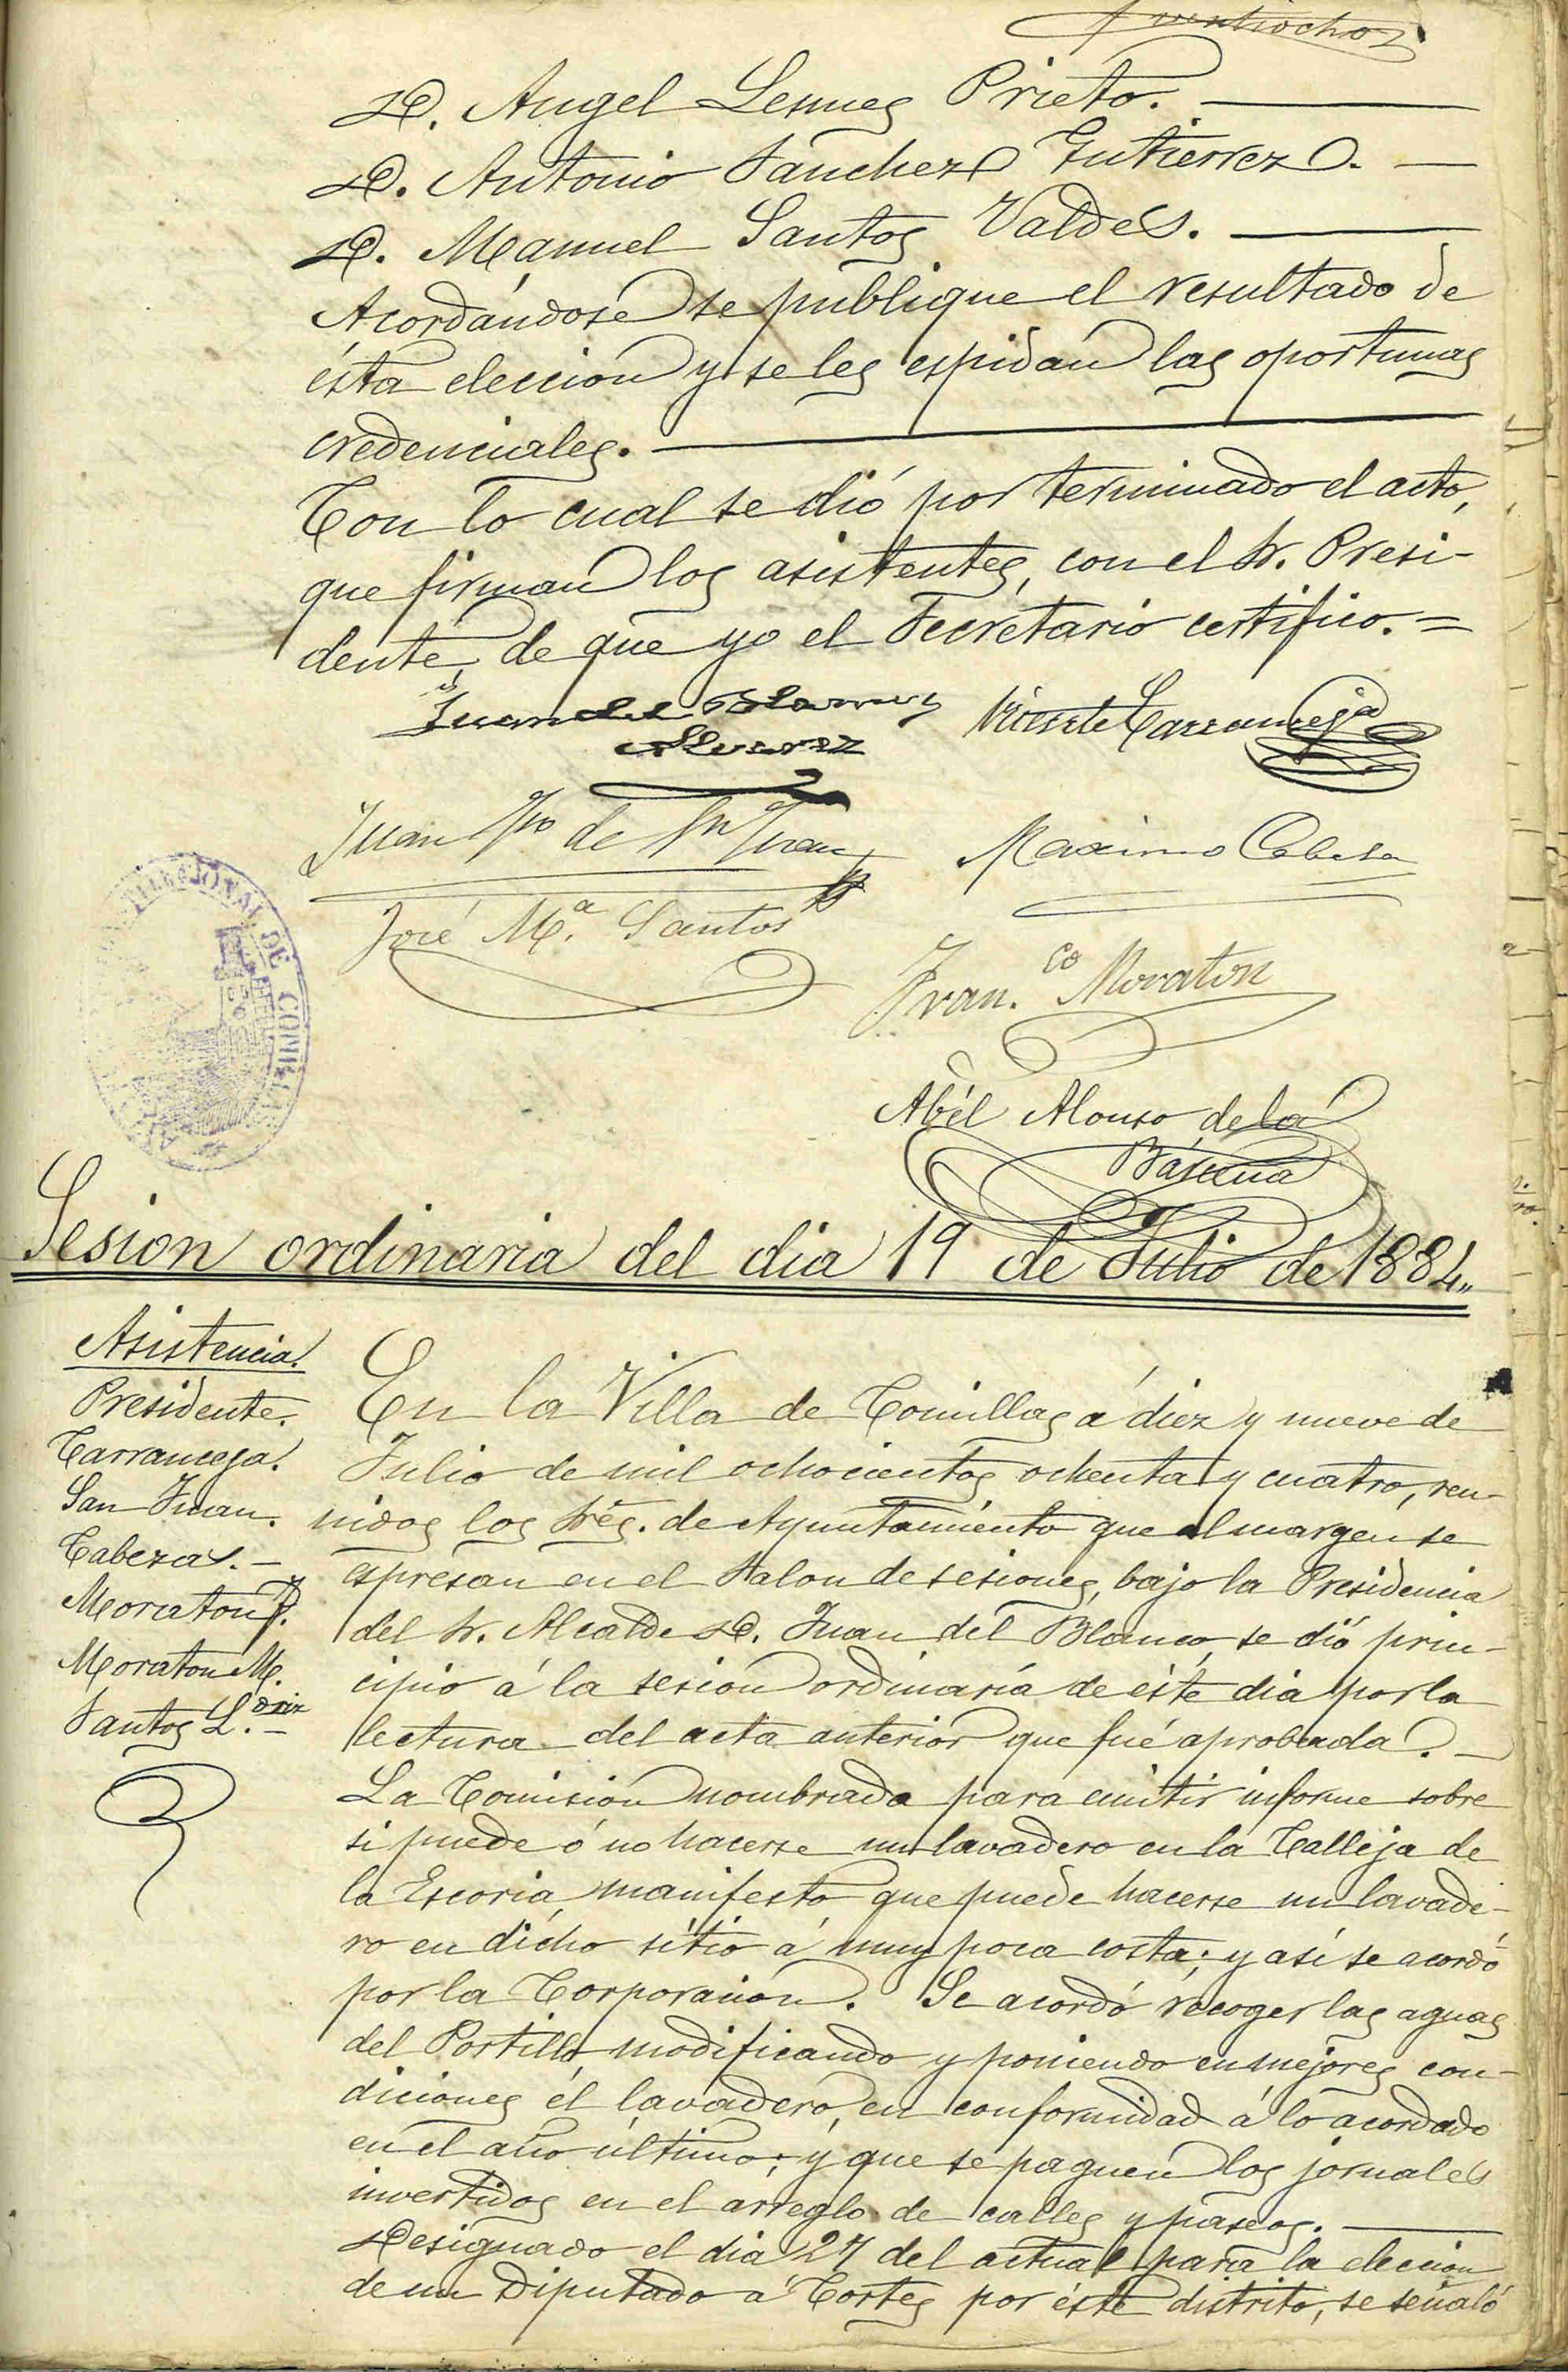 D. Angel Lesmes Prieto.
D. Antonio Sanchez Gutierrez.
D. Manuel Santos Valdes.
Acordándose se publique el resultado de
ésta eleccion y se les espidan las oportunas
credenciales.
Con lo cual se dió por terminado el acto,
que firman los asistentes, con el Sr. Presi-
dente, de que yo el Secretario certifico. =
Juan del Blanco y Vicente Carranceja
Alvarez
Juan de Sn Juan Maximo Cabeza
José Mª. Santos
Fran.co Moraton
CONSTITUCIONAL DE COMILLAS
Abél Alonso de la
Bárcena
Sesion ordinaria del dia 19 de Julio de 1884.,
Asistencia.
Presidente.
Carranceja.
San Juan.
Cabezas. -
Moraton F.
Moraton M.
Santos L. -
En la Villa de Comillas á diez y nueve de
Julio de mil ochocientos ochenta y cuatro, reu-
nidos los Sres. de Ayuntamiento que al margen se
espresan en el Salon de sesiones, bajo la Presidencia
del Sr. Alcalde D. Juan del Blanco, se dió prin-
cipio á la sesion ordinaria de éste dia por la
lectura del acta anterior que fué aprobada. -
La Comision nombrada para emitir informe sobre
si puede ó no hacerse un lavadero en la Calleja de
la Escoria, manifestó que puede hacerse un lavade-
ro en dicho sitio á muy poca costa; y así se acordó
por la Corporacion. Se acordó recoger las aguas
del Portillo, modificando y poniendo en mejores con-
diciones él lavadero, en conformidad á lo acordado
en el año último; y que se paguen los jornales
invertidos en el arreglo de calles y paseos.
Designado el dia 27 del actual para la eleccion
de un Diputado á Cortes por éste distrito, se señaló